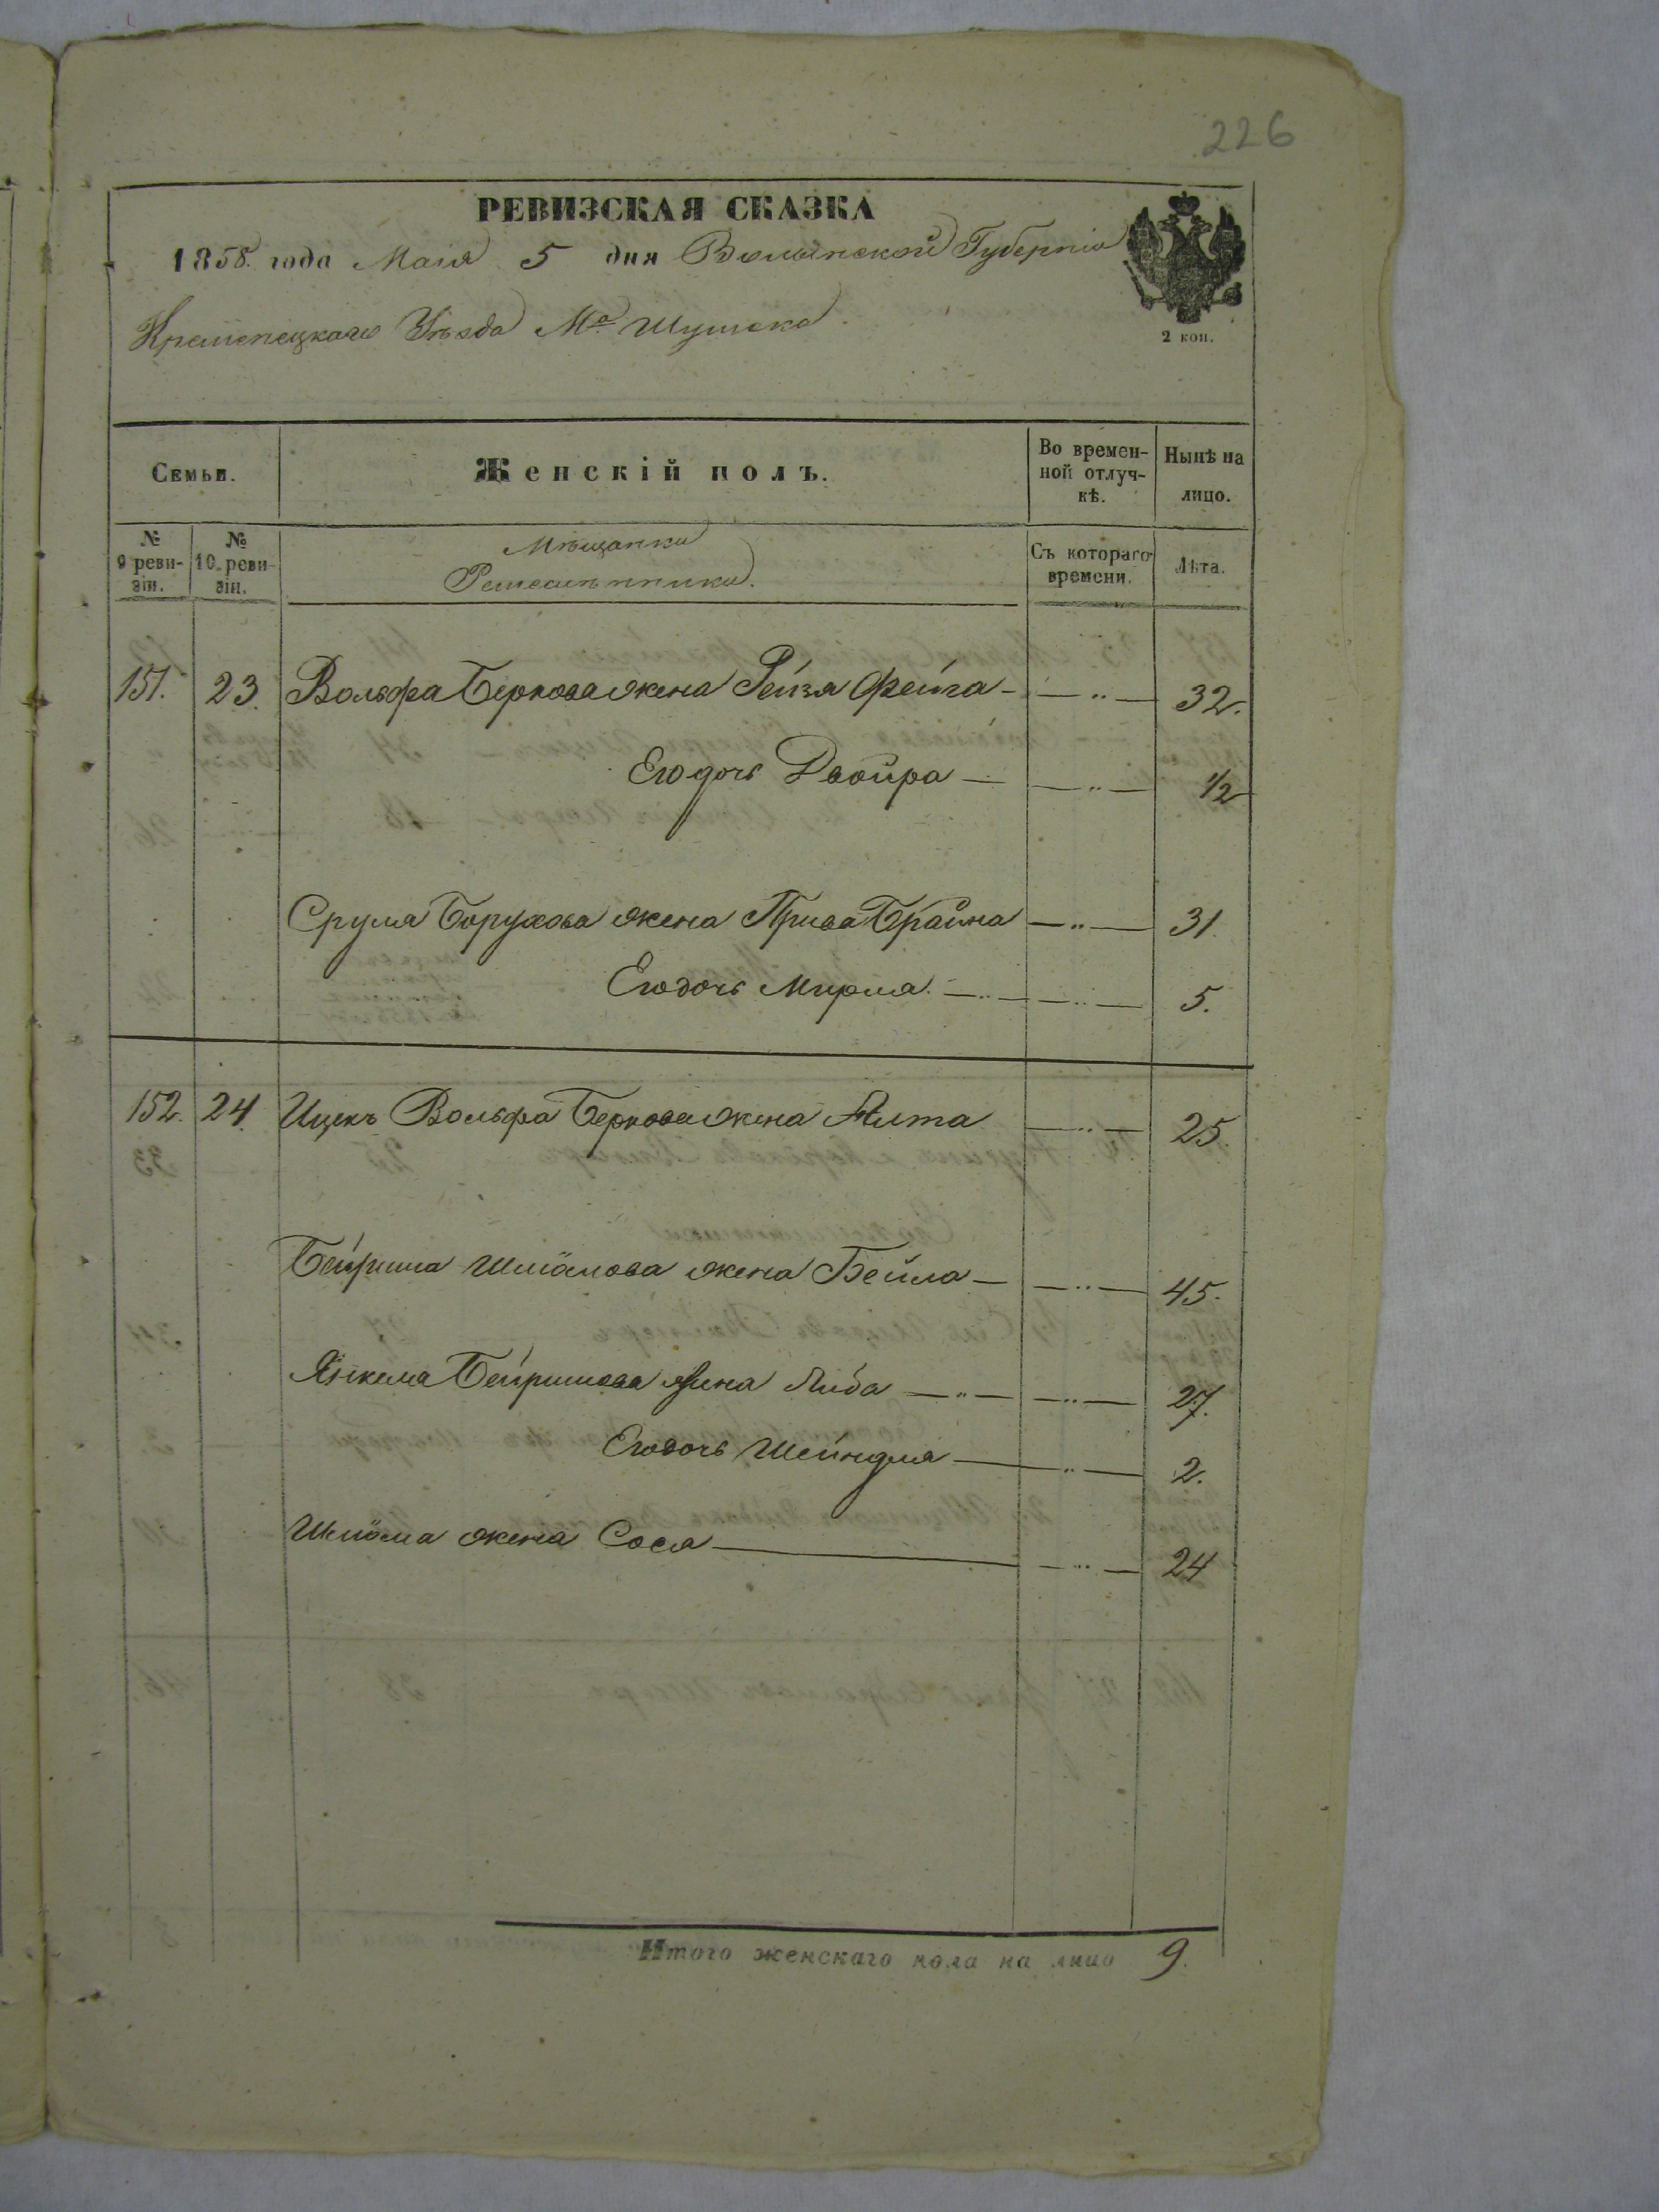 226
РЕВИЗСКАЯ СКАЗКА
1858. года Маія 5 дня Волынской Губерніи
Кременецкаго Уѣзда М-а Шумска.
2 коп.
Семьи.
Женскій полъ.
Во времен-
ной отлуч-
кѣ.
Нынѣ на
лицо.
№
9 реви-
зіи.
№
10. реви-
зіи.
Мѣщанки
Съ котораго
времени.
Лѣта.
151. 23. Вольфа Беркова жена Рейзя Фейга — — " — 32.
Его дочь Двойра — — " — 1/2
Сруля Борухова жена Прива Брайна — " — 31.
Его дочь Мирля. — " — — " — 5.
152. 24. Ицекъ Вольфа Беркова жена Алта — " — 25.
Бейриша Шлiомова жена Бейла — — " — 45.
Янкеля Бейришова жена Либа — " — — " — 27.
Его дочь Шейндля — — " — 2.
Шлiома жена Сося — — " — 24
Итого женскаго пола на лицо 9.